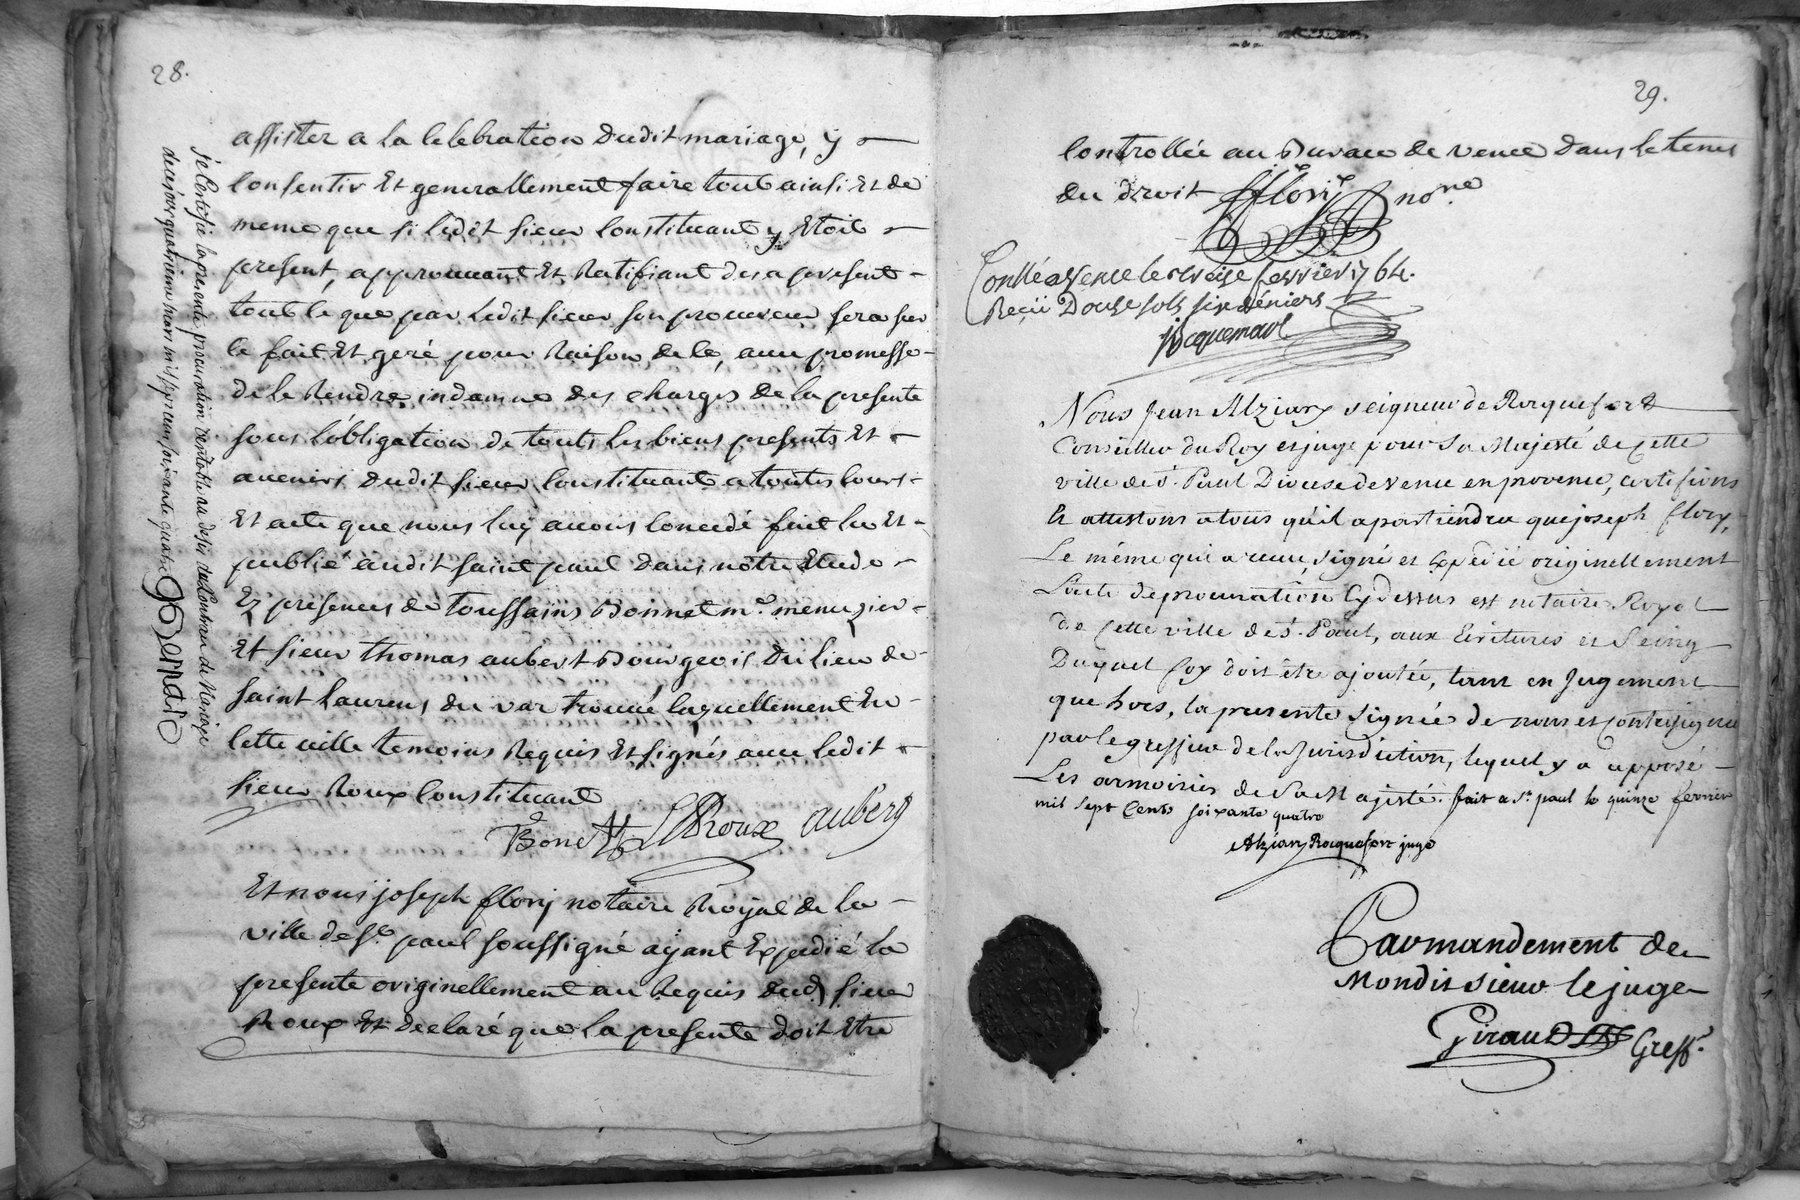 28.
assister a la Celebration Dudit mariage, y
Consentir Et generallement faire tout ainsi Et de
meme que si ledit sieur Constituant y Etoit
present, approuvant Et Ratifiant des a present
tout ce que par ledit sieur son procureur sera sur
ce fait Et geré pour Raison de ce, avec promesse
de le Rendre indamne des charges de la presente
sous l'obligation de touts les biens presents Et
avenirs dudit sieur Constituant a toutes Cours
Et acte que nous luy avons Concedé fait lu Et
publié audit saint paul dans notre Etude
Ez presences de Toussains Bonnet me. menusier
Et sieur thomas aubert Bourgeois du lieu de
saint Laurens du var trouvé laquellement En
Cette ville temoins Requis Et signés avec ledit
sieur Roux Constituant
Bonet Roux aubert
Et nous joseph flory notaire Royal de la
ville de St. paul soussigné ayant Expedié la
presente originellement au Requis dud sieur
Roux Et declaré que la presente doit Etre
je Certifie la presente procuration de Mariage
de ce jour quatrieme mars mil sept cens soixante quatre
29.
Controllée au Bureau de vence dans le tems
du droit ffloriy nore
Conllé a Vence le treise fevrier 1764.
Reçû Douse sols six déniers
Jacquemard
Nous Jean Alziary seigneur de Roquefort
Conseiller du Roy et juge pour Sa Majesté de Cette
ville de St. Paul Diocese de Vence en provence, certifions
Et attestons a tous qu'il apartiendra que joseph flory,
Le même qui a receu, signé et Expédié originellement
L'acte de procuration Cy dessus est notaire Royal
de Cette ville de St. Paul, aux Ecritures et Seing
Duquel foy doit être ajoutée, tant en Jugement
que hors, la presente signée de nous et Contresignée
par le greffier de la Jurisdiction, lequel y a apposé
Les armoiries de Sa Mté ajesté. fait a St. paul le quinze fevrier
mil sept Cents soixante quatre
Alziary Roquefort juge
Par mandement de
Mondit sieur le juge
Giraud Greffr.